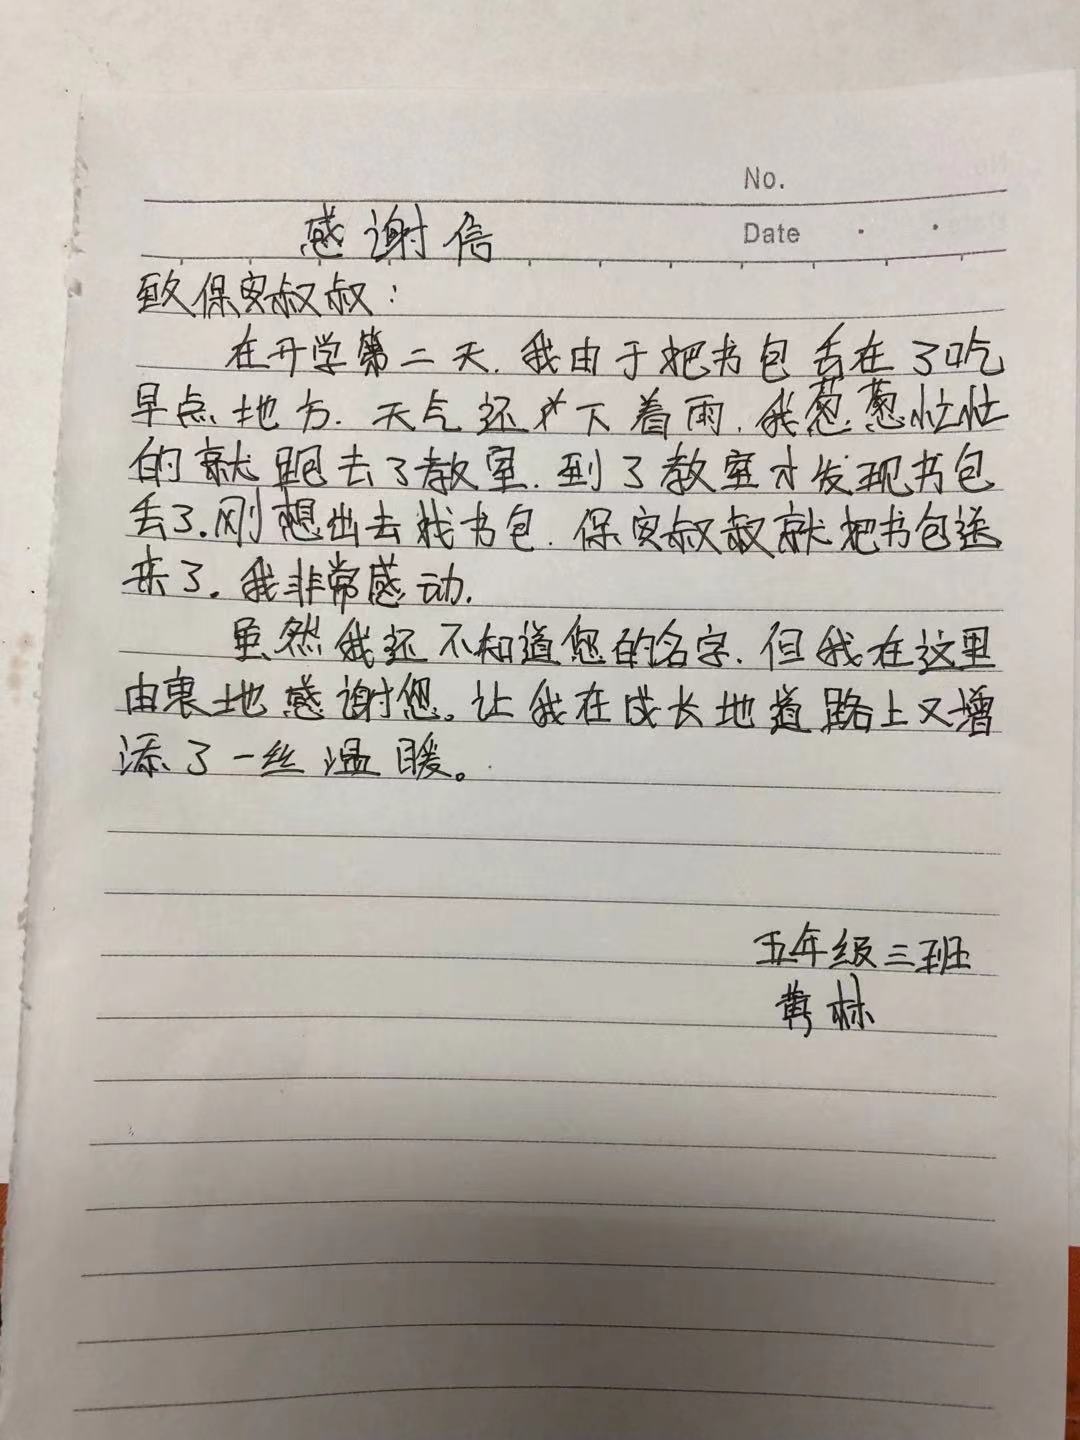 No.
Date
感谢信
致保安叔叔：
在开学第二天.我由于把书包丢在了吃
早点地方.天气还下着雨.我葱葱忙忙
的就跑去了教室.到了教室才发现书包
丢了.刚想出去找书包.保安叔叔就把书包送
来了。我非常感动.
虽然我还不知道您的名字.但我在这里
由衷地感谢您。让我在成长地道路上又增
添了一丝温暖。
五年级三班
林